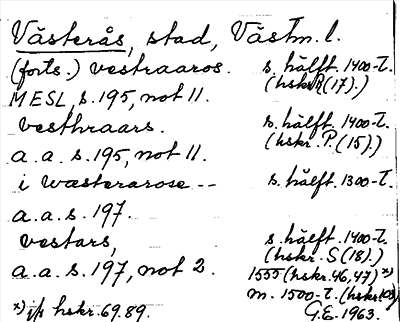 Västerås, stad, Västm. l.
(forts.) vestraaros. s. hälft. 1400-t.
MESL, s. 195, not 11. (hskr. R (17).)
vesthraars. s. hälft. 1400-t.
a.a. s. 195, not 11. (hskr. P. (15).)
i wæsterarose -- s. hälft. 1300-t.
a.a. s. 197.
vestars, s. hälft. 1400-t.
(hskr. S (18).)
a.a. s. 197, not 2. 1555 (hskr. 46, 47) x)
m. 1500-t. (hskr.
x) jfr hskr. 69. 89. G.E. 1963.